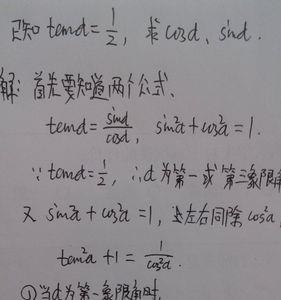 已知 tanα = 1/2, 求 cosα、sinα.
解: 首先要知道两个公式、
tanα = sinα/cosα, sin²α + cos²α = 1.
∵ tanα = 1/2, ∴ α为第一或第三象限角
又 sin²α + cos²α = 1, 上左右同除 cos²α,
tan²α + 1 = 1/cos²α.
①当α为第一象限角时,